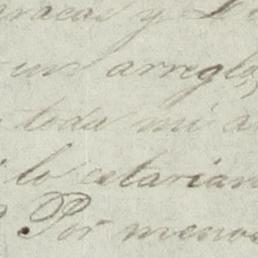 y
un arreglo,
toda mi a
lo estarian
Por menos